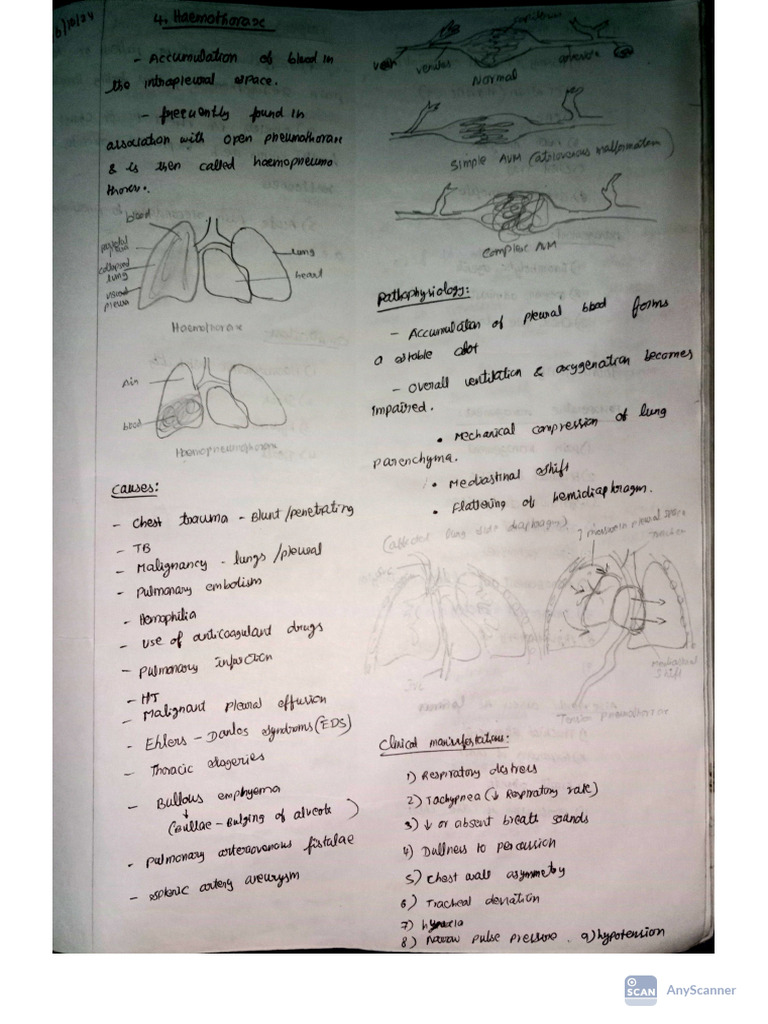 4. Haemothorax
- Accumulation of blood in
the intrapleural space.
- frequently found in
association with open pneumothorax
& is then called haemopneumo
thorax.
blood
parietal
collapsed
lung
visceral
pleura
lung
heart
Haemothorax
Air
blood
Haemopneumothorax
Causes:
- Chest trauma - Blunt/penetrating
- TB
- Malignancy - lungs/pleural
- Pulmonary embolism
- Hemophilia
- Use of anticoagulant drugs
- Pulmonary infarction
- HT
- Malignant pleural effusion
- Ehlers - Danlos syndroms (EDS)
- Thoracic
- Bullous emphyema
↓
(bullae - Bulging of alveole)
- pulmonary arteriovenous fistulae
- splenic artery aneurysm
vein
venules
arteriole
Normal
Simple AVM (atriovenous malformation)
Complex AVM
Pathophysiology:
- Accumulation of pleural blood forms
a stable clot
- Overall ventilation & oxygenation becomes
impaired.
• Mechanical compression of lung
parenchyma.
• Mediastinal shift
• Flattering of hemidiaphragm.
(affected lung side diaphragm)
↑ pressure in pleural space
Trachea
SVC
IVC
Mediastinal
shift
Tension pneumothorax
Clinical manisfestations:
1) Respiratory distress
2) Tachypnea (↓ Respiratory rate)
3) ↓ or absent breath sounds
4) Dullness to percussion
5) Chest wall asymmetry
6) Tracheal deviation
7) hypoxia
8) Narrow pulse pressure. 9) hypotension
SCAN
AnyScanner